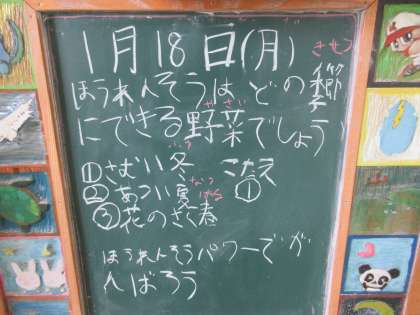 1月18日(月)
ほうれんそうは どの季節
きせつ
にできる野菜でしょう
やさい
①さむい冬
ふゆ
こたえ
①
②あつい夏
なつ
③花のさく春
はる
ほうれんそうパワーでが
んばろう